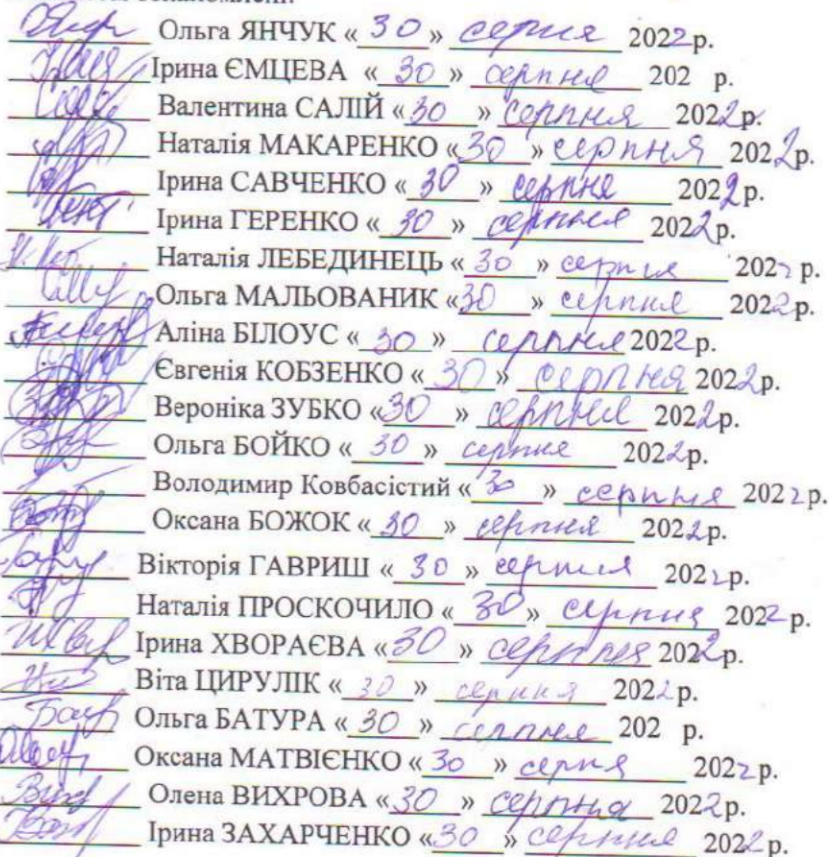 Ольга ЯНЧУК « 30 » серпня 2022 р.
Ірина ЄМЦЕВА « 30 » серпня 202 р.
Валентина САЛІЙ « 30 » серпня 2022 р.
Наталія МАКАРЕНКО « 30 » серпня 2022 р.
Ірина САВЧЕНКО « 30 » серпня 2022 р.
Ірина ГЕРЕНКО « 30 » серпня 2022 р.
Наталія ЛЕБЕДИНЕЦЬ « 30 » серпня 2022 р.
Ольга МАЛЬОВАНИК « 30 » серпня 2022 р.
Аліна БІЛОУС « 30 » серпня 2022 р.
Євгенія КОБЗЕНКО « 30 » серпня 2022 р.
Вероніка ЗУБКО « 30 » серпня 2022 р.
Ольга БОЙКО « 30 » серпня 2022 р.
Володимир Ковбасістий « 30 » серпня 2022 р.
Оксана БОЖОК « 30 » серпня 2022 р.
Вікторія ГАВРИШ « 30 » серпня 2022 р.
Наталія ПРОСКОЧИЛО « 30 » серпня 2022 р.
Ірина ХВОРАЄВА « 30 » серпня 2022 р.
Віта ЦИРУЛІК « 30 » серпня 2022 р.
Ольга БАТУРА « 30 » серпня 202 р.
Оксана МАТВІЄНКО « 30 » серпя 2022 р.
Олена ВИХРОВА « 30 » серпня 2022 р.
Ірина ЗАХАРЧЕНКО « 30 » серпня 2022 р.